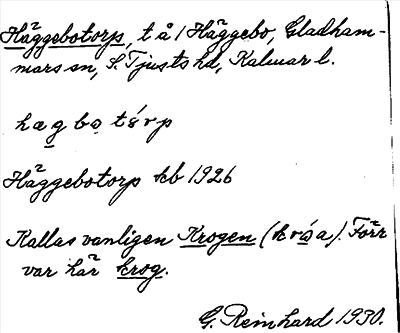 Häggebotorp, t å 1 Häggebo, Gladham-
mars sn, S. Tjusts hd, Kalmar l.
hægbotórp
Häggebotorp kb 1926
Kallas vanligen Krogen (króa). Förr
var här krog.
G. Reinhard 1930.